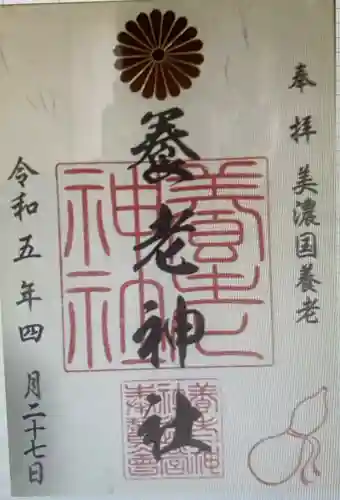 奉拝 美濃国養老
養老神社
養老神社
令和五年四月二十七日